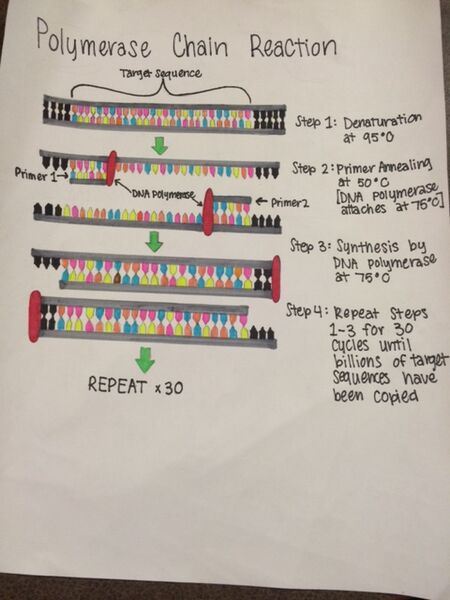 Polymerase Chain Reaction
Target Sequence
Step 1: Denaturation
at 95°C
Step 2: Primer Annealing
at 50°C
[DNA polymerase
attaches at 75°C]
Primer 1
DNA polymerase
Primer 2
Step 3: Synthesis by
DNA polymerase
at 75°C
Step 4: Repeat Steps
1-3 for 30
cycles until
billions of target
sequences have
been copied
REPEAT x 30